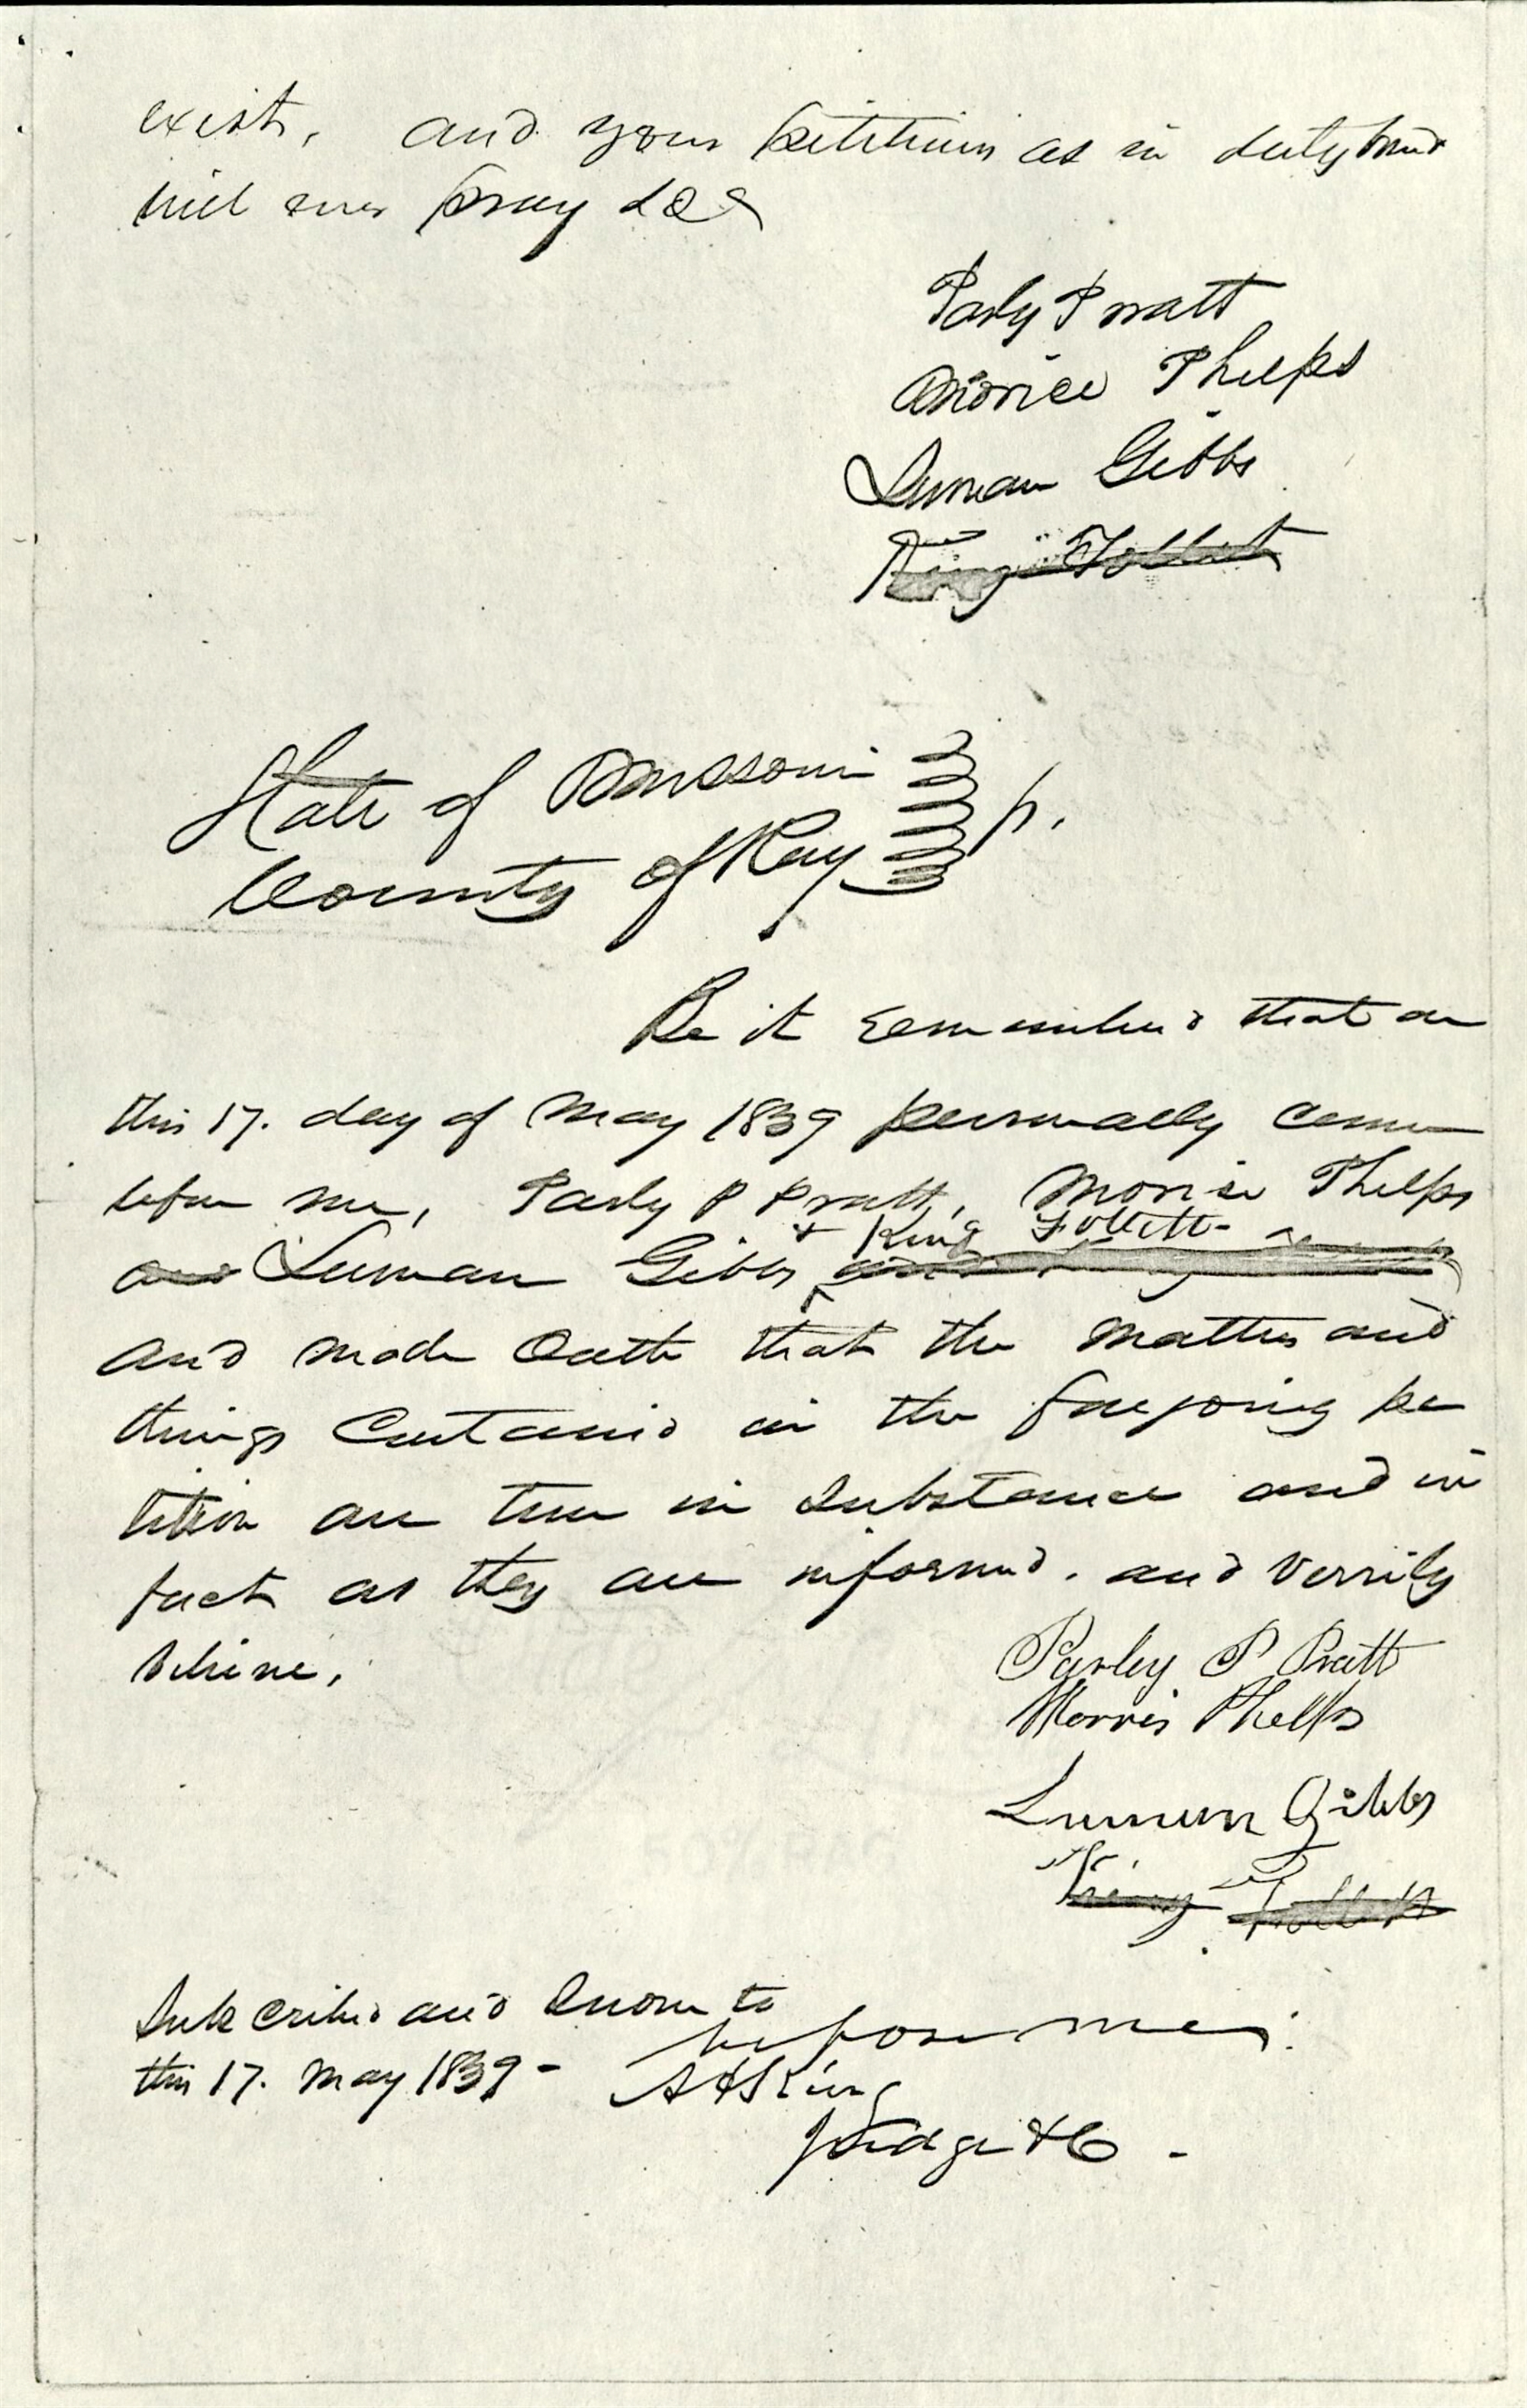 exist, and your petitioners as in duty bound
will ever pray &c
Parly P Pratt
Morice Phelps
Luman Gibbs
King Follett
State of Missouri
County of Ray
Be it remembered that on
this 17. day of May 1839 personally came
before me, Parly P Pratt, Morise Phelps
& King Follett
and Luman Gibbs
and made Oath that the matters and
things Contained in the foregoing pe
tition are true in substance and in
fact as they are informed. and verrily
believe.
Parley P Pratt
Morris Phelps
Luman Gibbs
King Follett
Subscribed and Sworn to
before me
this 17. May 1839 -
A A King
Judge &c -